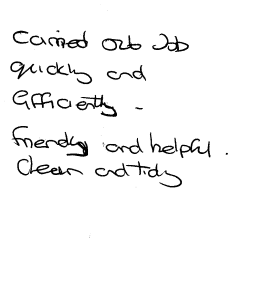 Carried out Job
quickly and
Efficiently -
friendly and helpful.
Clean and tidy